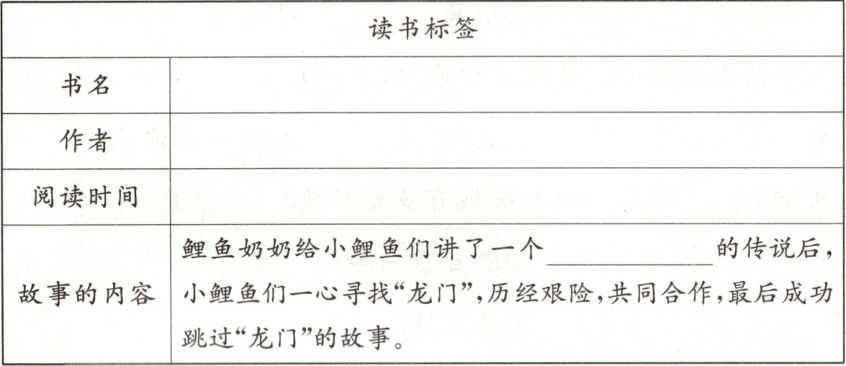 读书标签
书名
作者
阅读时间
故事的内容
鲤鱼奶奶给小鲤鱼们讲了一个____________的传说后，
小鲤鱼们一心寻找“龙门”，历经艰险，共同合作，最后成功
跳过“龙门”的故事。